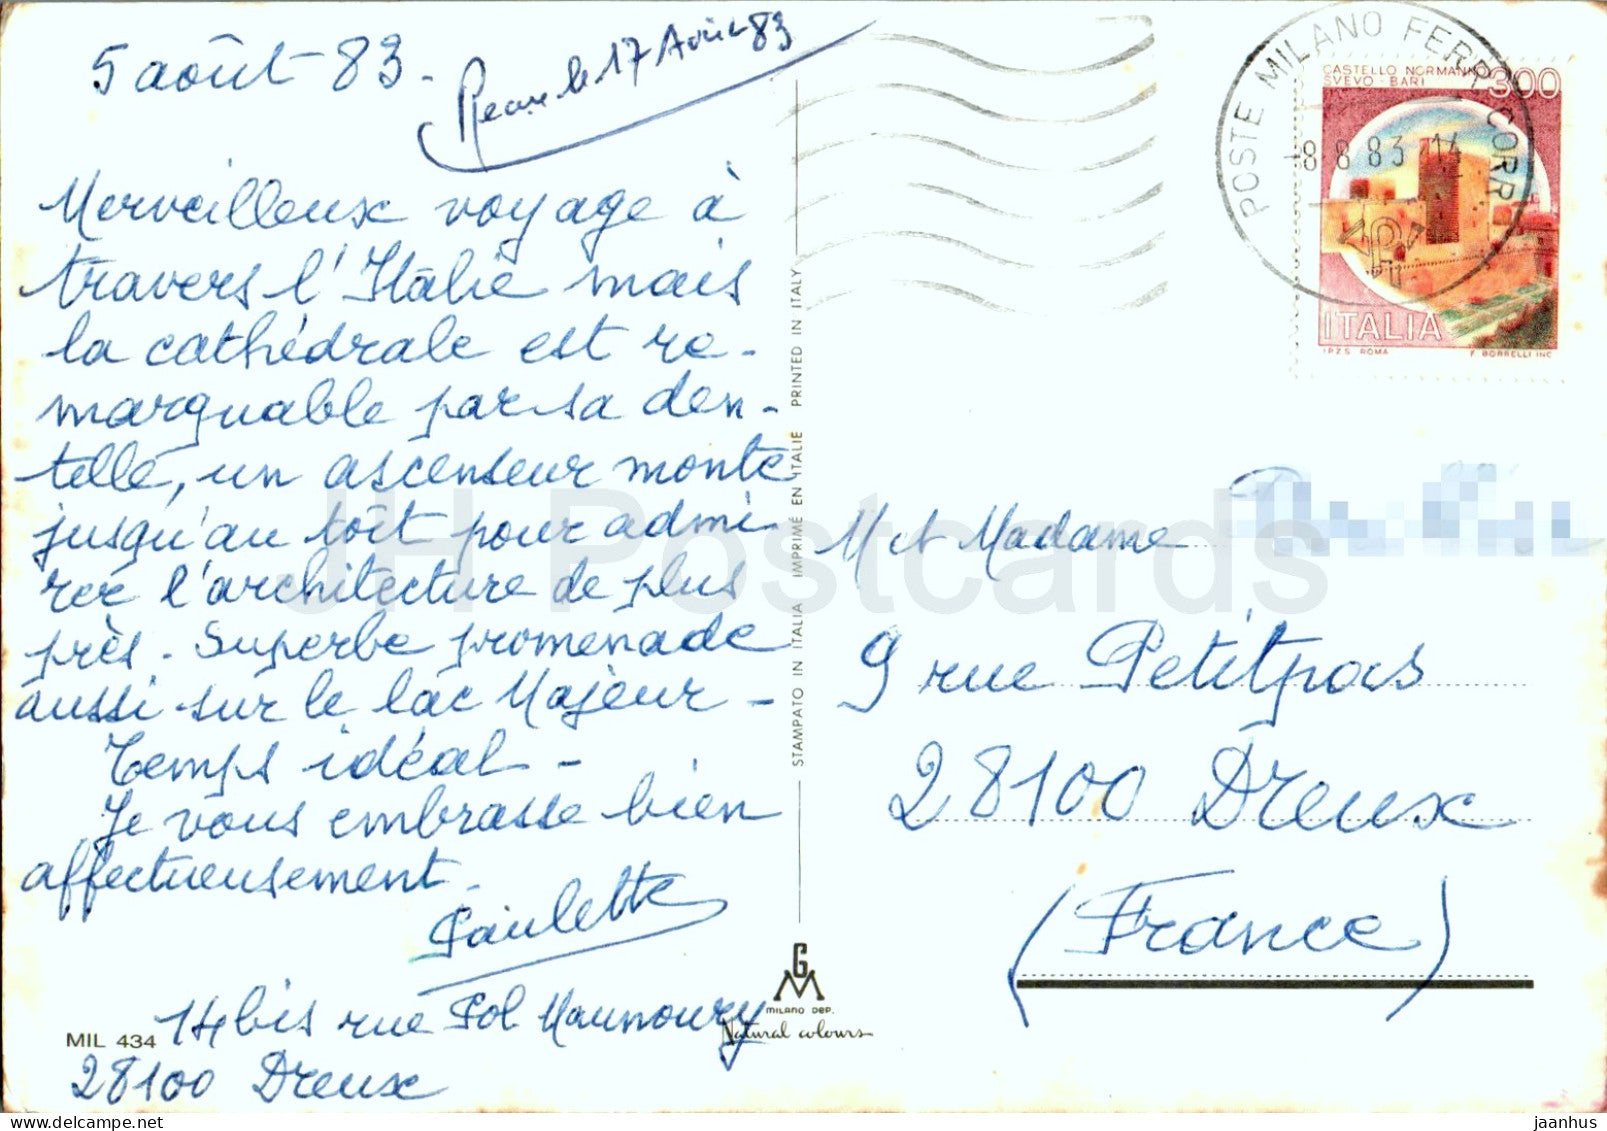 5 août - 83 -
Reçu le 17 Avril 83
Merveilleux voyage à
travers l'Italie mais
la cathédrale est re-
marquable par sa den-
telle, un ascenseur monte
jusqu'au toît pour admi-
rer l'architecture de plus
près. Superbe promenade
aussi sur le lac Majeur -
Temps idéal -
Je vous embrasse bien
affectueusement.
Paulette
14 bis rue Pol Maunoury
28100 Dreux
MIL 434
STAMPATO IN ITALIA IMPRIMÉ EN ITALIE PRINTED IN ITALY
GM
MILANO DEP.
Natural colours
POSTE MILANO FERR. CORR
-8 8 83 14
CASTELLO NORMANNO
SVEVO - BARI
300
ITALIA
I.P.Z.S. ROMA F. BORRELLI INC.
M et Madame
9 rue Petitpas
28100 Dreux
(France)
JH Postcards
www.delcampe.net
jaanhus